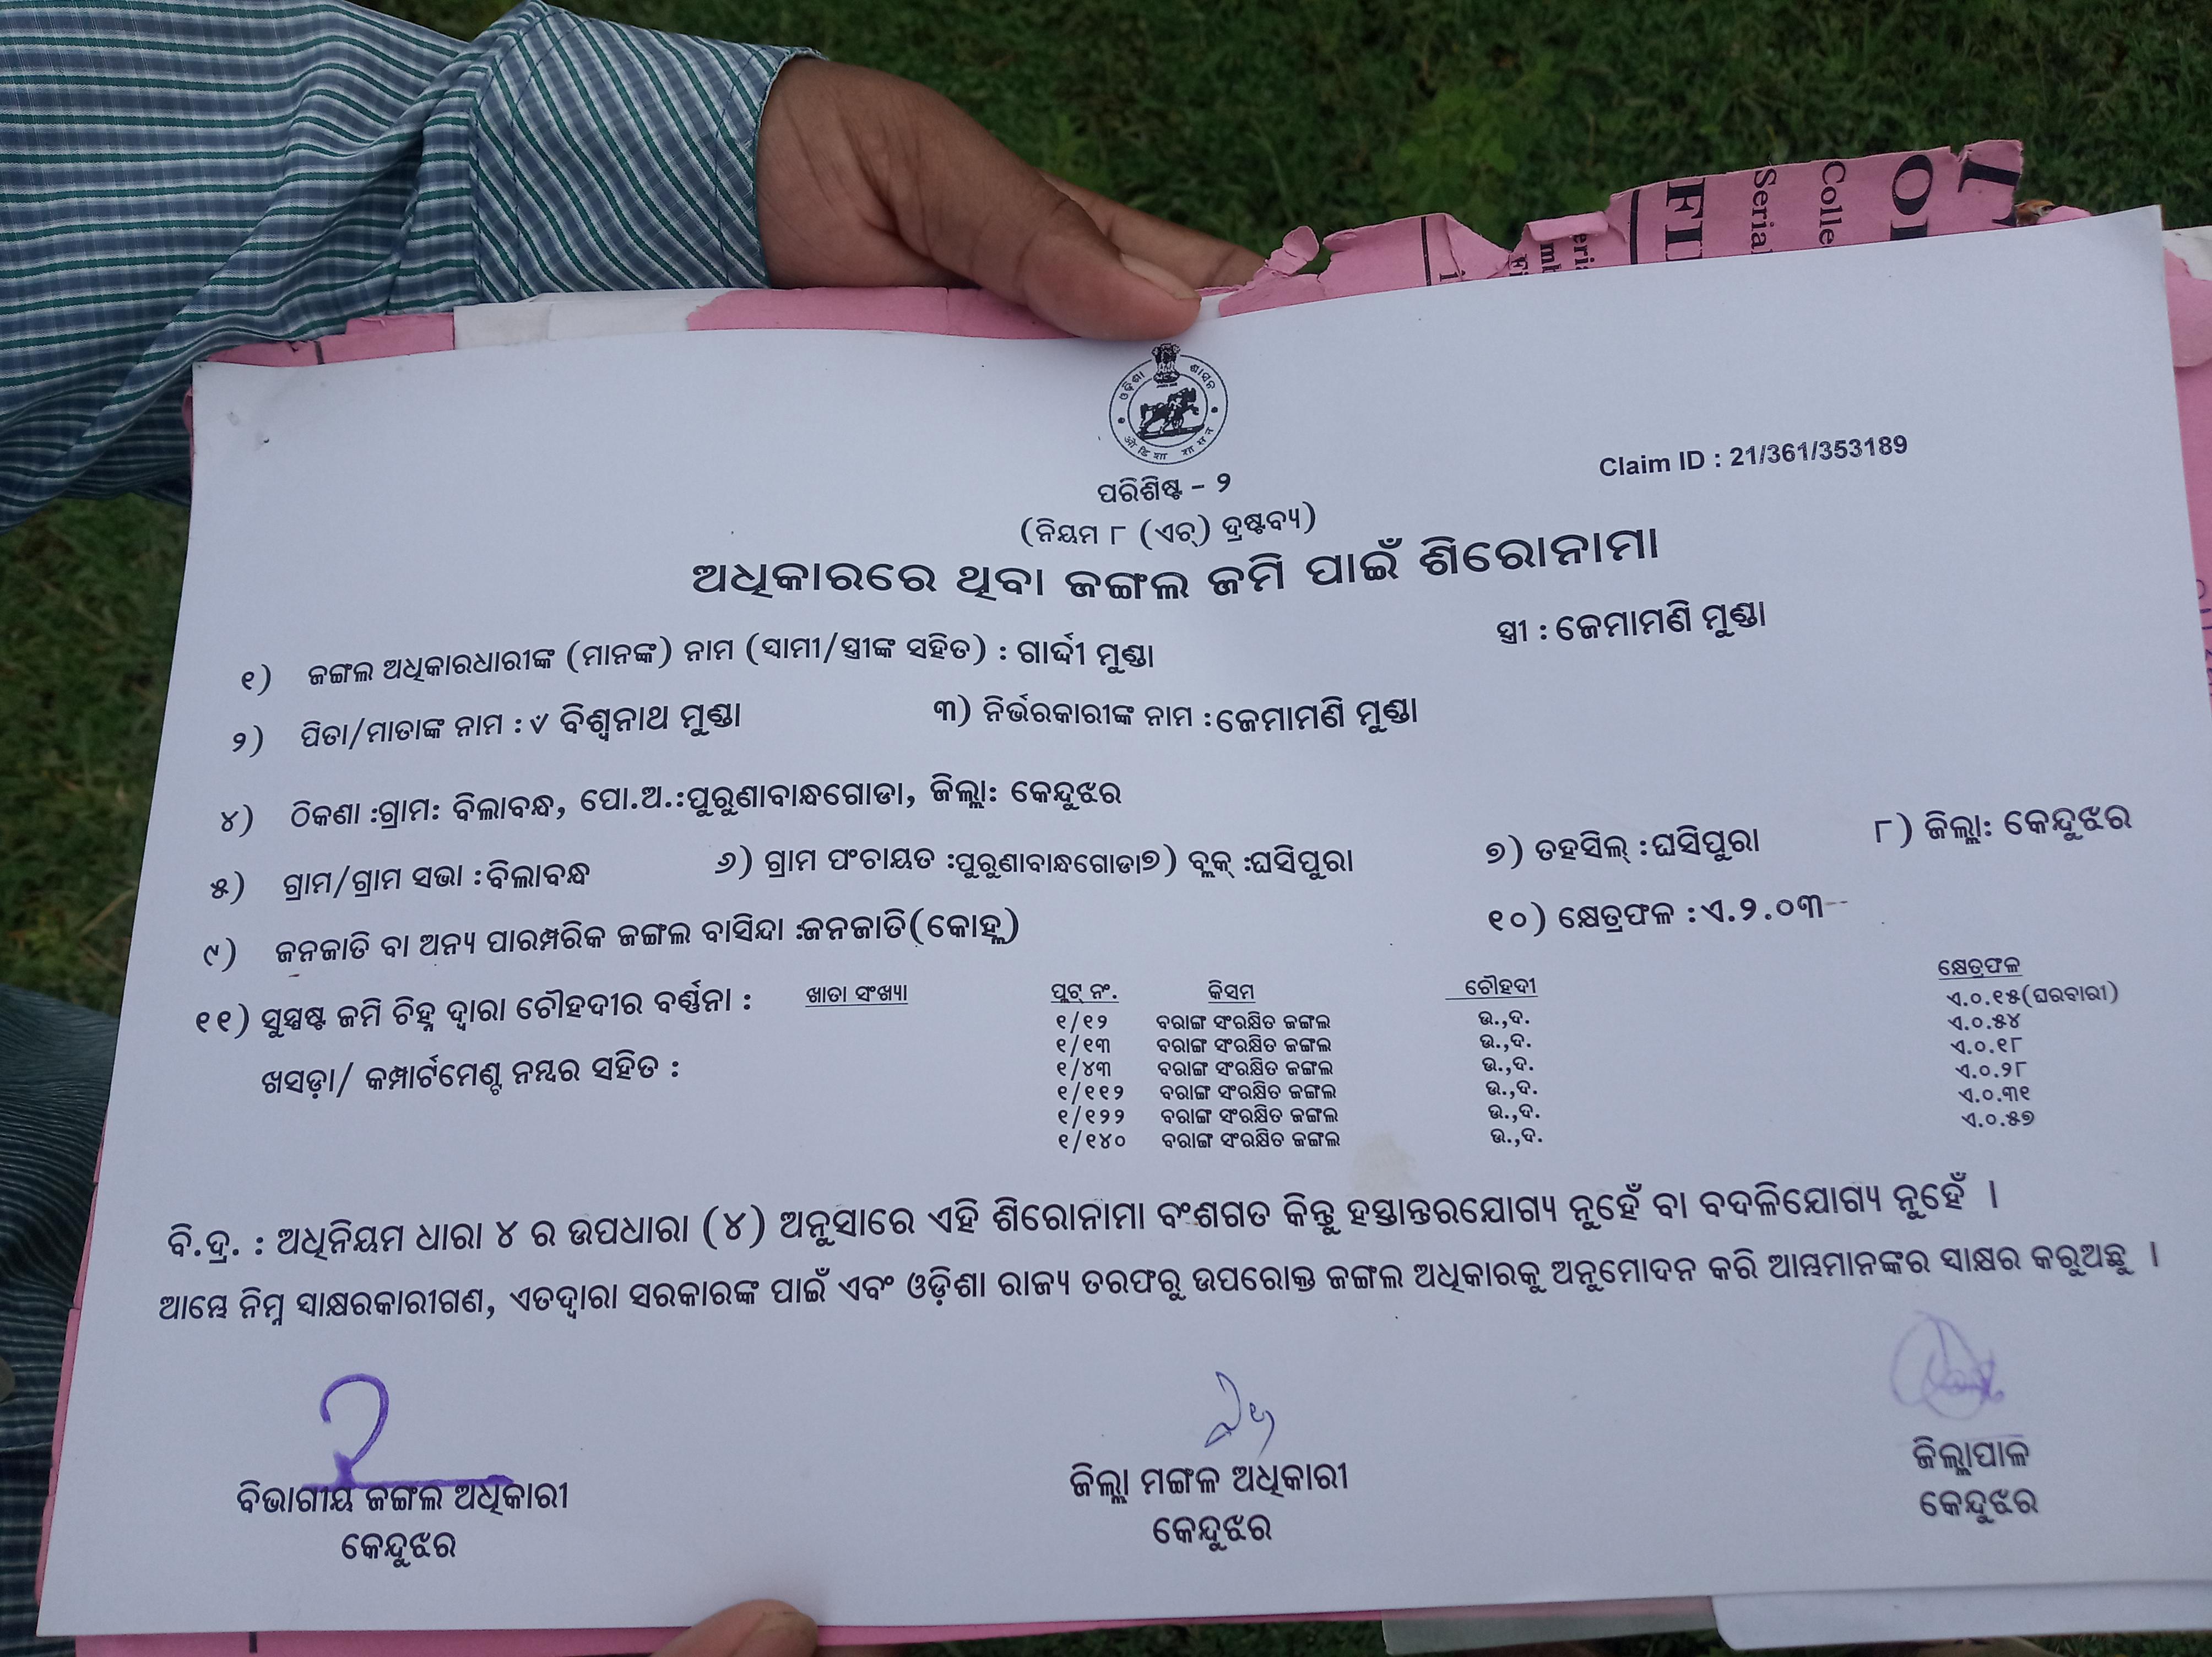 ଓଡ଼ିଶା ଶାସନ
ओडिशा शासन
Claim ID : 21/361/353189
ପରିଶିଷ୍ଟ - ୨
(ନିୟମ ୮ (ଏଚ୍) ଦ୍ରଷ୍ଟବ୍ୟ)
ଅଧିକାରରେ ଥିବା ଜଙ୍ଗଲ ଜମି ପାଇଁ ଶିରୋନାମା
୧) ଜଙ୍ଗଲ ଅଧିକାରଧାରୀଙ୍କ (ମାନଙ୍କ) ନାମ (ସ୍ୱାମୀ/ସ୍ତ୍ରୀଙ୍କ ସହିତ) : ଗାର୍ଦ୍ଦୀ ମୁଣ୍ଡା ସ୍ତ୍ରୀ : ଜେମାମଣି ମୁଣ୍ଡା
୨) ପିତା/ମାତାଙ୍କ ନାମ : ବିଶ୍ୱନାଥ ମୁଣ୍ଡା ୩) ନିର୍ଭରକାରୀଙ୍କ ନାମ :ଜେମାମଣି ମୁଣ୍ଡା
୪) ଠିକଣା :ଗ୍ରାମ: ବିଲାବନ୍ଧ, ପୋ.ଅ.:ପୁରୁଣାବାନ୍ଧଗୋଡା, ଜିଲ୍ଲା: କେନ୍ଦୁଝର
୫) ଗ୍ରାମ/ଗ୍ରାମ ସଭା :ବିଲାବନ୍ଧ ୬) ଗ୍ରାମ ପଂଚାୟତ :ପୁରୁଣାବାନ୍ଧଗୋଡା ୭) ବ୍ଲକ୍ :ଘସିପୁରା ୭) ତହସିଲ୍ :ଘସିପୁରା ୮) ଜିଲ୍ଲା: କେନ୍ଦୁଝର
୯) ଜନଜାତି ବା ଅନ୍ୟ ପାରମ୍ପରିକ ଜଙ୍ଗଲ ବାସିନ୍ଦା :ଜନଜାତି(କୋହ୍ଲ) ୧୦) କ୍ଷେତ୍ରଫଳ :ଏ.୨.୦୩
୧୧) ସୁସ୍ପଷ୍ଟ ଜମି ଚିହ୍ନ ଦ୍ୱାରା ଚୌହଦୀର ବର୍ଣ୍ଣନା : ଖାତା ସଂଖ୍ୟା ପ୍ଲଟ୍ ନଂ. କିସମ ଚୌହଦୀ କ୍ଷେତ୍ରଫଳ
୧/୧୨ ବରାଙ୍ଗ ସଂରକ୍ଷିତ ଜଙ୍ଗଲ ଉ.,ଦ. ଏ.୦.୧୫(ଘରବାରୀ)
୧/୧୩ ବରାଙ୍ଗ ସଂରକ୍ଷିତ ଜଙ୍ଗଲ ଉ.,ଦ. ଏ.୦.୫୪
ଖସଡ଼ା/ କମ୍ପାର୍ଟମେଣ୍ଟ ନମ୍ବର ସହିତ : ୧/୪୩ ବରାଙ୍ଗ ସଂରକ୍ଷିତ ଜଙ୍ଗଲ ଉ.,ଦ. ଏ.୦.୧୮
୧/୧୧୨ ବରାଙ୍ଗ ସଂରକ୍ଷିତ ଜଙ୍ଗଲ ଉ.,ଦ. ଏ.୦.୨୮
୧/୧୨୨ ବରାଙ୍ଗ ସଂରକ୍ଷିତ ଜଙ୍ଗଲ ଉ.,ଦ. ଏ.୦.୩୧
୧/୧୪୦ ବରାଙ୍ଗ ସଂରକ୍ଷିତ ଜଙ୍ଗଲ ଉ.,ଦ. ଏ.୦.୫୭
ବି.ଦ୍ର. : ଅଧିନିୟମ ଧାରା ୪ ର ଉପଧାରା (୪) ଅନୁସାରେ ଏହି ଶିରୋନାମା ବଂଶଗତ କିନ୍ତୁ ହସ୍ତାନ୍ତରଯୋଗ୍ୟ ନୁହେଁ ବା ବଦଳିଯୋଗ୍ୟ ନୁହେଁ ।
ଆମ୍ଭେ ନିମ୍ନ ସ୍ୱାକ୍ଷରକାରୀଗଣ, ଏତଦ୍ୱାରା ସରକାରଙ୍କ ପାଇଁ ଏବଂ ଓଡ଼ିଶା ରାଜ୍ୟ ତରଫରୁ ଉପରୋକ୍ତ ଜଙ୍ଗଲ ଅଧିକାରକୁ ଅନୁମୋଦନ କରି ଆମ୍ଭମାନଙ୍କର ସ୍ୱାକ୍ଷର କରୁଅଛୁ ।
ବିଭାଗୀୟ ଜଙ୍ଗଲ ଅଧିକାରୀ ଜିଲ୍ଲା ମଙ୍ଗଳ ଅଧିକାରୀ ଜିଲ୍ଲାପାଳ
କେନ୍ଦୁଝର କେନ୍ଦୁଝର କେନ୍ଦୁଝର